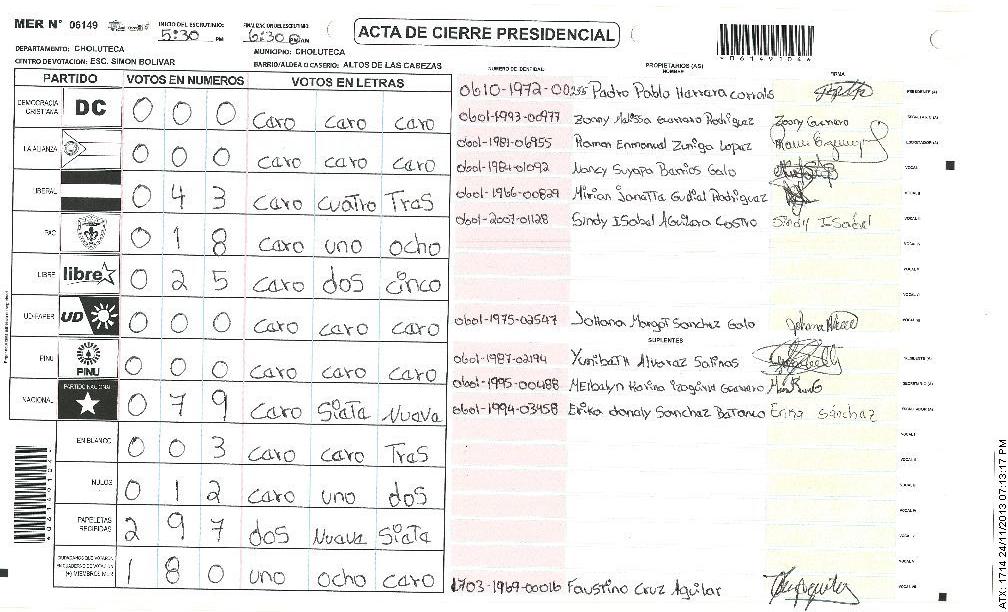 MER N° 06149
INICIO DEL ESCRUTINIO: 5:30 PM
FINALIZACION DEL ESCRUTINIO: 6:30 PM
ACTA DE CIERRE PRESIDENCIAL
DEPARTAMENTO: CHOLUTECA
MUNICIPIO: CHOLUTECA
CENTRO DE VOTACION: ESC. SIMON BOLIVAR
BARRIO/ALDEA O CASERIO: ALTOS DE LAS CABEZAS
PARTIDO VOTOS EN NUMEROS VOTOS EN LETRAS
NUMERO DE IDENTIDAD PROPIETARIOS (AS) NOMBRE FIRMA
DEMOCRACIA CRISTIANA DC 0 0 0 caro caro caro
LA ALIANZA 0 0 0 caro caro caro
LIBERAL 0 4 3 caro cuatro Tras
PAC 0 1 8 caro uno ocho
LIBRE libre 0 2 5 caro dos cinco
UD-FAPER UD 0 0 0 caro caro caro
PINU PINU 0 0 0 caro caro caro
NACIONAL PARTIDO NACIONAL 0 7 9 caro Siata Nuava
EN BLANCO 0 0 3 caro caro Tras
NULOS 0 1 2 caro uno dos
PAPELETAS RECIBIDAS 2 9 7 dos Nuava Siata
CIUDADANOS QUE VOTARON (+) MIEMBROS MER 1 8 0 uno ocho caro
0610-1972-00255 Padro Pablo Harrara corrals PRESIDENTE (A)
0601-1993-00977 Zonny Malissa Guarrero Rodriguez SECRETARIO (A)
0601-1981-06955 Ramon Enmanual Zuniga Lopaz ESCRUTADOR (A)
0601-1984-01092 Nancy Suyapa Barrios Galo VOCAL I
0601-1966-00829 Mirian Janatta Gudial Rodriguaz VOCAL II
0601-2007-01128 Sindy ISabal Aguilara Castro Sindy ISabel
0601-1975-02547 Johana Margot Sanchaz Galo
SUPLENTES
0601-1987-02194 Yunibath Alvaraz Salinas PRESIDENTE (A)
0601-1995-00488 Melbalyn Karina Izaguirra Guarrero SECRETARIO (A)
0601-1994-03458 Erika donaly Sanchaz Batanco Erika Sánchaz ESCRUTADOR (A)
1703-1969-00016 Faustino Cruz Aguilar
ATX: 1714 24/11/2013 07:13:17 PM